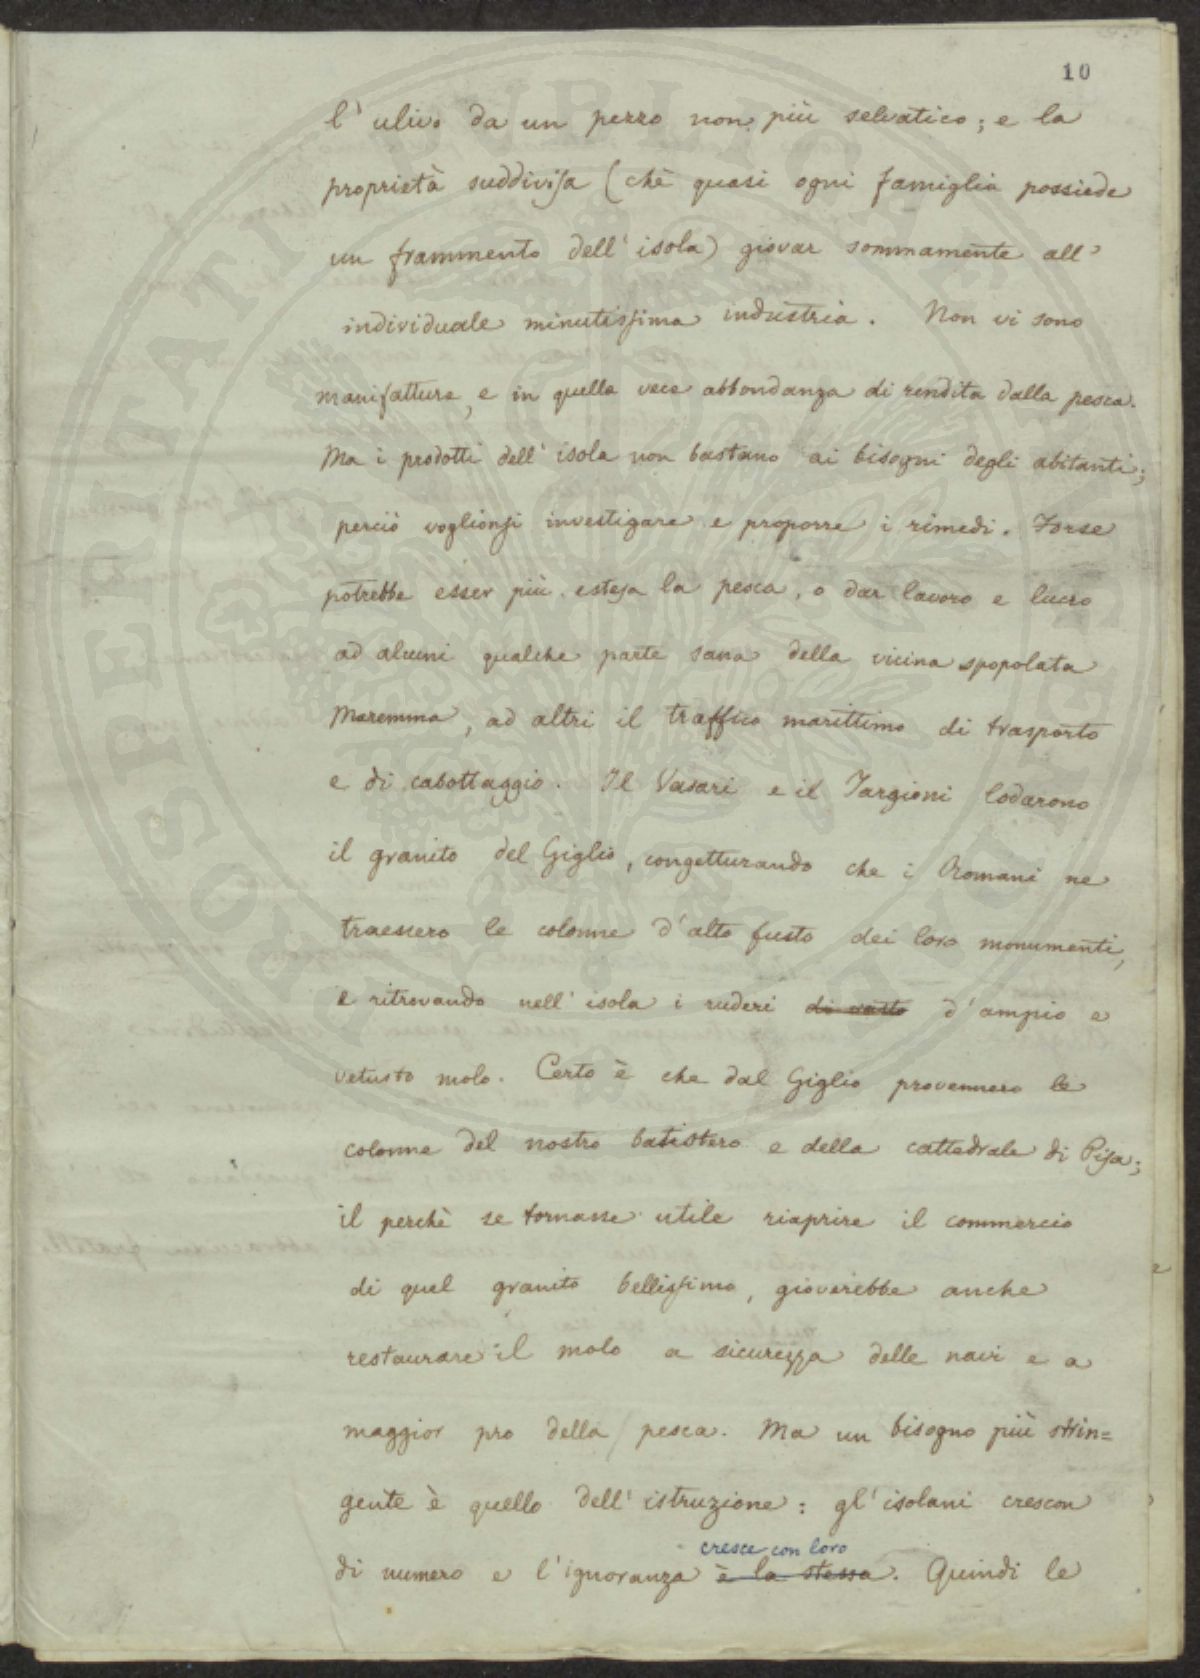 10
l' ulivo da un pezzo non più selvatico; e la
proprietà suddivisa (chè quasi ogni famiglia possiede
un frammento dell' isola) giovar sommamente all'
individuale minutissima industria. Non vi sono
manifatture, e in quella vece abbondanza di rendita dalla pesca.
Ma i prodotti dell' isola non bastano ai bisogni degli abitanti;
perciò voglionsi investigare e proporre i rimedi. Forse
potrebbe esser più estesa la pesca, o dar lavoro e lucro
ad alcuni qualche parte sana della vicina spopolata
Maremma, ad altri il traffico marittimo di trasporto
e di cabottaggio. Il Vasari e il Targioni lodarono
il granito del Giglio, congetturando che i Romani ne
traessero le colonne d'alto fusto dei loro monumenti,
e ritrovando nell' isola i ruderi di vasto d'ampio e
vetusto molo. Certo è che dal Giglio provennero le
colonne del nostro batistero e della cattedrale di Pisa;
il perchè se tornasse utile riaprire il commercio
di quel granito bellissimo, gioverebbe anche
restaurare il molo a sicurezza delle navi e a
maggior pro della pesca. Ma un bisogno più strin=
gente è quello dell' istruzione: gl' isolani crescon
cresce con loro
di numero e l'ignoranza è la stessa. Quindi le
PROSPERITATI PUBLICAE